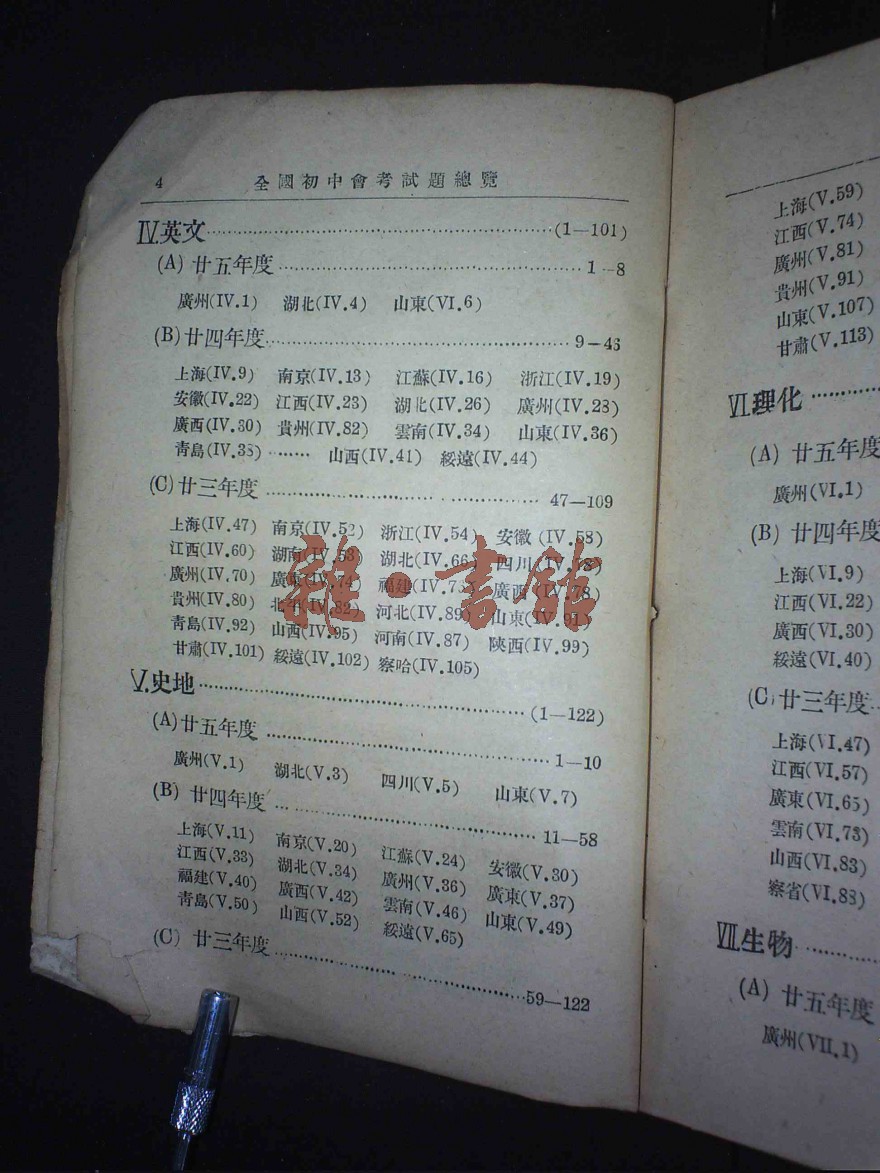 4 全國初中會考試題總覽
IV.英文……(1—101)
(A) 廿五年度……1—8
廣州(IV.1) 湖北(IV.4) 山東(VI.6)
(B) 廿四年度……9—46
上海(IV.9) 南京(IV.13) 江蘇(IV.16) 浙江(IV.19)
安徽(IV.22) 江西(IV.23) 湖北(IV.26) 廣州(IV.28)
廣西(IV.30) 貴州(IV.82) 雲南(IV.34) 山東(IV.36)
靑島(IV.38)…… 山西(IV.41) 綏遠(IV.44)
(C) 廿三年度……47—109
上海(IV.47) 南京(IV.52) 浙江(IV.54) 安徽(IV.58)
江西(IV.60) 湖南(IV.53) 湖北(IV.66) 四川
廣州(IV.70) 廣東(IV.74) 福建 廣西(IV.78)
貴州(IV.80) 北平(IV.82) 河北(IV.89) 山東(IV.91)
靑島(IV.92) 山西(IV.95) 河南(IV.87) 陝西(IV.99)
甘肅(IV.101) 綏遠(IV.102) 察哈(IV.105)
V.史地……(1—122)
(A) 廿五年度……1—10
廣州(V.1) 湖北(V.3) 四川(V.5) 山東(V.7)
(B) 廿四年度……11—58
上海(V.11) 南京(V.20) 江蘇(V.24) 安徽(V.30)
江西(V.33) 湖北(V.34) 廣州(V.36) 廣東(V.37)
福建(V.40) 廣西(V.42) 雲南(V.46) 山東(V.49)
靑島(V.50) 山西(V.52) 綏遠(V.65)
(C) 廿三年度……59—122
雜·書館
上海(V.59)
江西(V.74)
廣州(V.81)
貴州(V.91)
山東(V.107)
甘肅(V.113)
VI.理化……
(A) 廿五年度
廣州(VI.1)
(B) 廿四年度
上海(VI.9)
江西(VI.22)
廣西(VI.30)
綏遠(VI.40)
(C) 廿三年度
上海(VI.47)
江西(VI.57)
廣東(VI.65)
雲南(VI.73)
山西(VI.83)
察省(VI.88)
VII.生物……
(A) 廿五年度
廣州(VII.1)